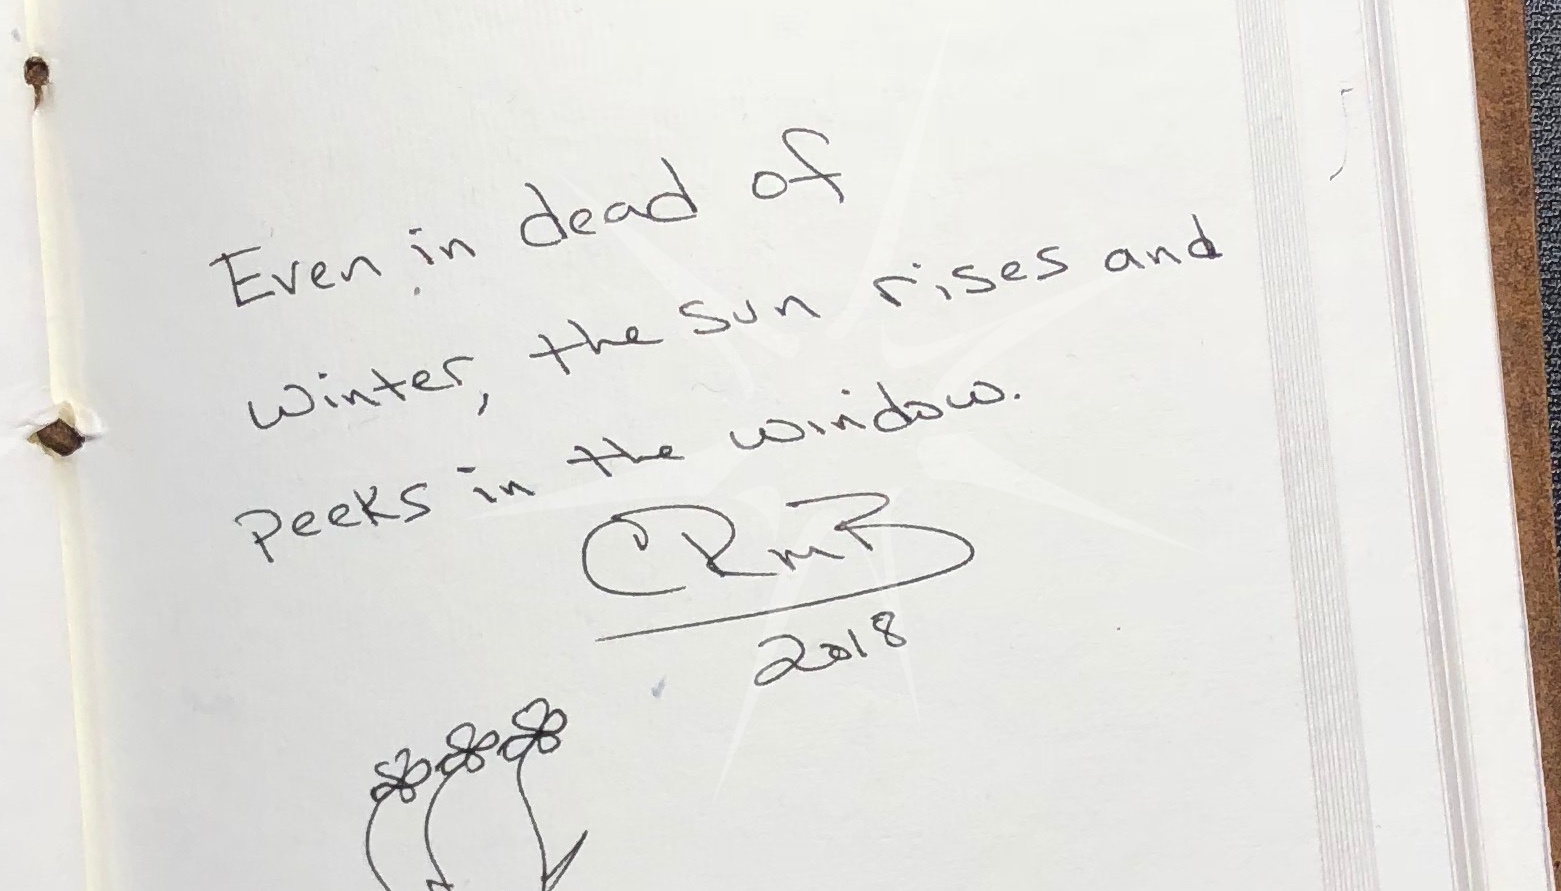 Even in dead of
winter, the sun rises and
peeks in the window.
CRMB
2018